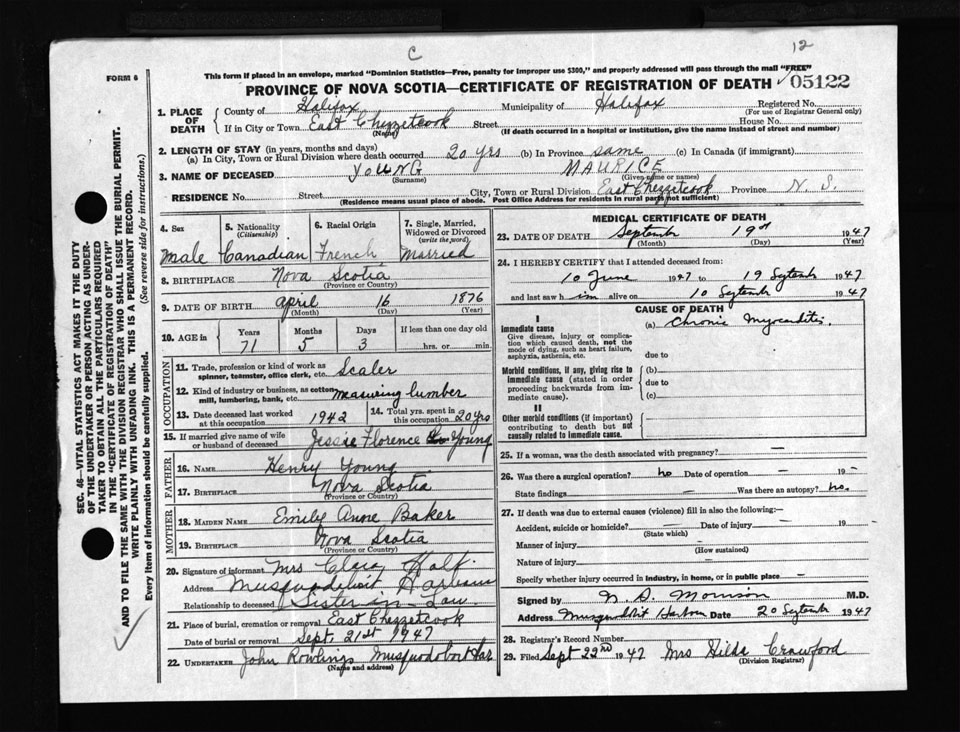 C
12
FORM 6
This form if placed in an envelope, marked "Dominion Statistics—Free, penalty for improper use $300," and properly addressed will pass through the mail "FREE"
PROVINCE OF NOVA SCOTIA—CERTIFICATE OF REGISTRATION OF DEATH 05122
1. PLACE OF DEATH
County of Halifax Municipality of Halifax Registered No.
(For use of Registrar General only)
If in City or Town East Chezzetcook Street House No.
(Name) (If death occurred in a hospital or institution, give the name instead of street and number)
2. LENGTH OF STAY (in years, months and days)
(a) In City, Town or Rural Division where death occurred 20 yrs (b) In Province same (c) In Canada (if immigrant)
3. NAME OF DECEASED YOUNG MAURICE
(Surname) (Given name or names)
RESIDENCE No. Street City, Town or Rural Division East Chezzetcook Province N. S.
(Residence means usual place of abode. Post Office Address for residents in rural parts not sufficient)
4. Sex
Male
5. Nationality
(Citizenship)
Canadian
6. Racial Origin
French
7. Single, Married, Widowed or Divorced
(write the word)
Married
8. BIRTHPLACE Nova Scotia
(Province or Country)
9. DATE OF BIRTH April 16 1876
(Month) (Day) (Year)
10. AGE in Years Months Days If less than one day old
71 5 3 hrs. or min.
OCCUPATION
11. Trade, profession or kind of work as spinner, teamster, office clerk, etc. Scaler
12. Kind of industry or business, as cotton mill, lumbering, bank, etc. measuring lumber
13. Date deceased last worked at this occupation 1942
14. Total yrs. spent in this occupation 20 yrs
15. If married give name of wife or husband of deceased Jessie Florence Young
FATHER
16. NAME Henry Young
17. BIRTHPLACE Nova Scotia
(Province or Country)
MOTHER
18. MAIDEN NAME Emily Anne Baker
19. BIRTHPLACE Nova Scotia
(Province or Country)
20. Signature of informant Mrs Clara
Address Musquodoboit Harbour
Relationship to deceased Sister in Law
21. Place of burial, cremation or removal East Chezzetcook
Date of burial or removal Sept. 21st 1947
22. UNDERTAKER John Rowlings Musquodoboit Har
(Name and address)
MEDICAL CERTIFICATE OF DEATH
23. DATE OF DEATH September 19th 1947
(Month) (Day) (Year)
24. I HEREBY CERTIFY that I attended deceased from:
10 June 1947 to 19 September 1947
and last saw him alive on 10 September 1947
CAUSE OF DEATH
I
Immediate cause
Give disease, injury or complication which caused death, not the mode of dying, such as heart failure, asphyxia, asthenia, etc.
(a) Chronic Myocarditis.
due to
Morbid conditions, if any, giving rise to immediate cause (stated in order proceeding backwards from immediate cause).
(b)
due to
(c)
II
Other morbid conditions (if important) contributing to death but not causally related to immediate cause.
25. If a woman, was the death associated with pregnancy? —
26. Was there a surgical operation? no Date of operation — 19 -
State findings — Was there an autopsy? no.
27. If death was due to external causes (violence) fill in also the following:—
Accident, suicide or homicide? — Date of injury — 19
(State which)
Manner of injury
(How sustained)
Nature of injury
Specify whether injury occurred in industry, in home, or in public place —
Signed by N. D. Morrison M.D.
Address Musquodoboit Harbour Date 20 September 1947
28. Registrar's Record Number
29. Filed Sept 22nd 1947 Mrs Hilda Crawford
(Division Registrar)
SEC. 46—VITAL STATISTICS ACT MAKES IT THE DUTY
OF THE UNDERTAKER OR PERSON ACTING AS UNDER-
TAKER TO OBTAIN ALL THE PARTICULARS REQUIRED
IN THE "CERTIFICATE OF REGISTRATION OF DEATH"
AND TO FILE THE SAME WITH THE DIVISION REGISTRAR WHO SHALL ISSUE THE BURIAL PERMIT.
WRITE PLAINLY WITH UNFADING INK. THIS IS A PERMANENT RECORD.
Every item of information should be carefully supplied. (See reverse side for instructions.)